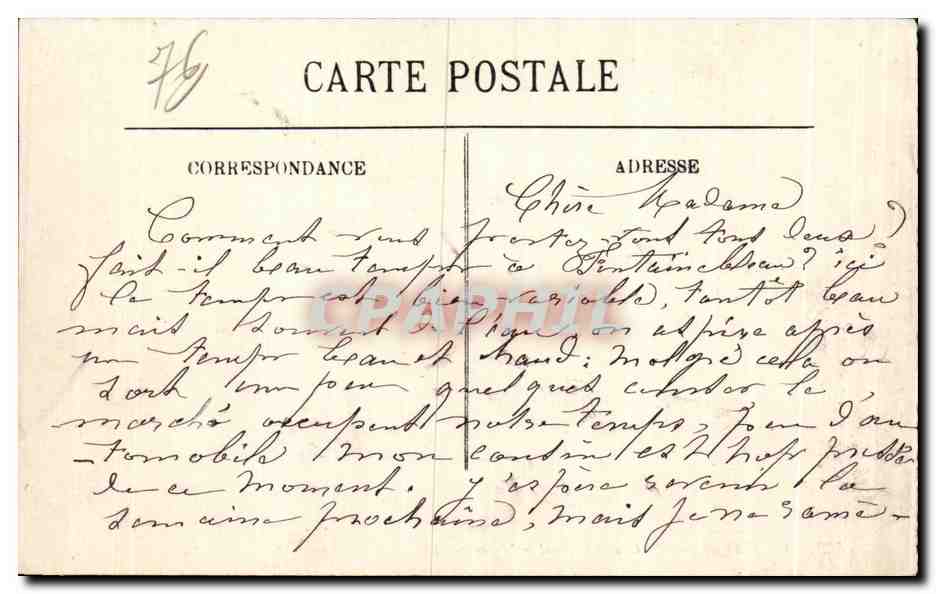 76
CARTE POSTALE
CORRESPONDANCE
ADRESSE
Chère Madame
Comment vous portez-vous tous deux?
fait-il beau temps à Fontainebleau? ici
le temps est bien variable, tantôt beau
mais souvent de l'eau, on aspire après
un temps beau et chaud; malgré cela on
sort un peu quelques courses, le
marché occupent notre temps, peu d'au
-tomobile mon cousin est trop pressé
de ce moment. J'espère revenir la
semaine prochaine, mais je ne
CPAPHIL